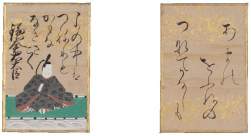 よの中は
つねにも
かもな
なきさこく
鎌倉右大臣
あまの
をふねの
つなてかなしも